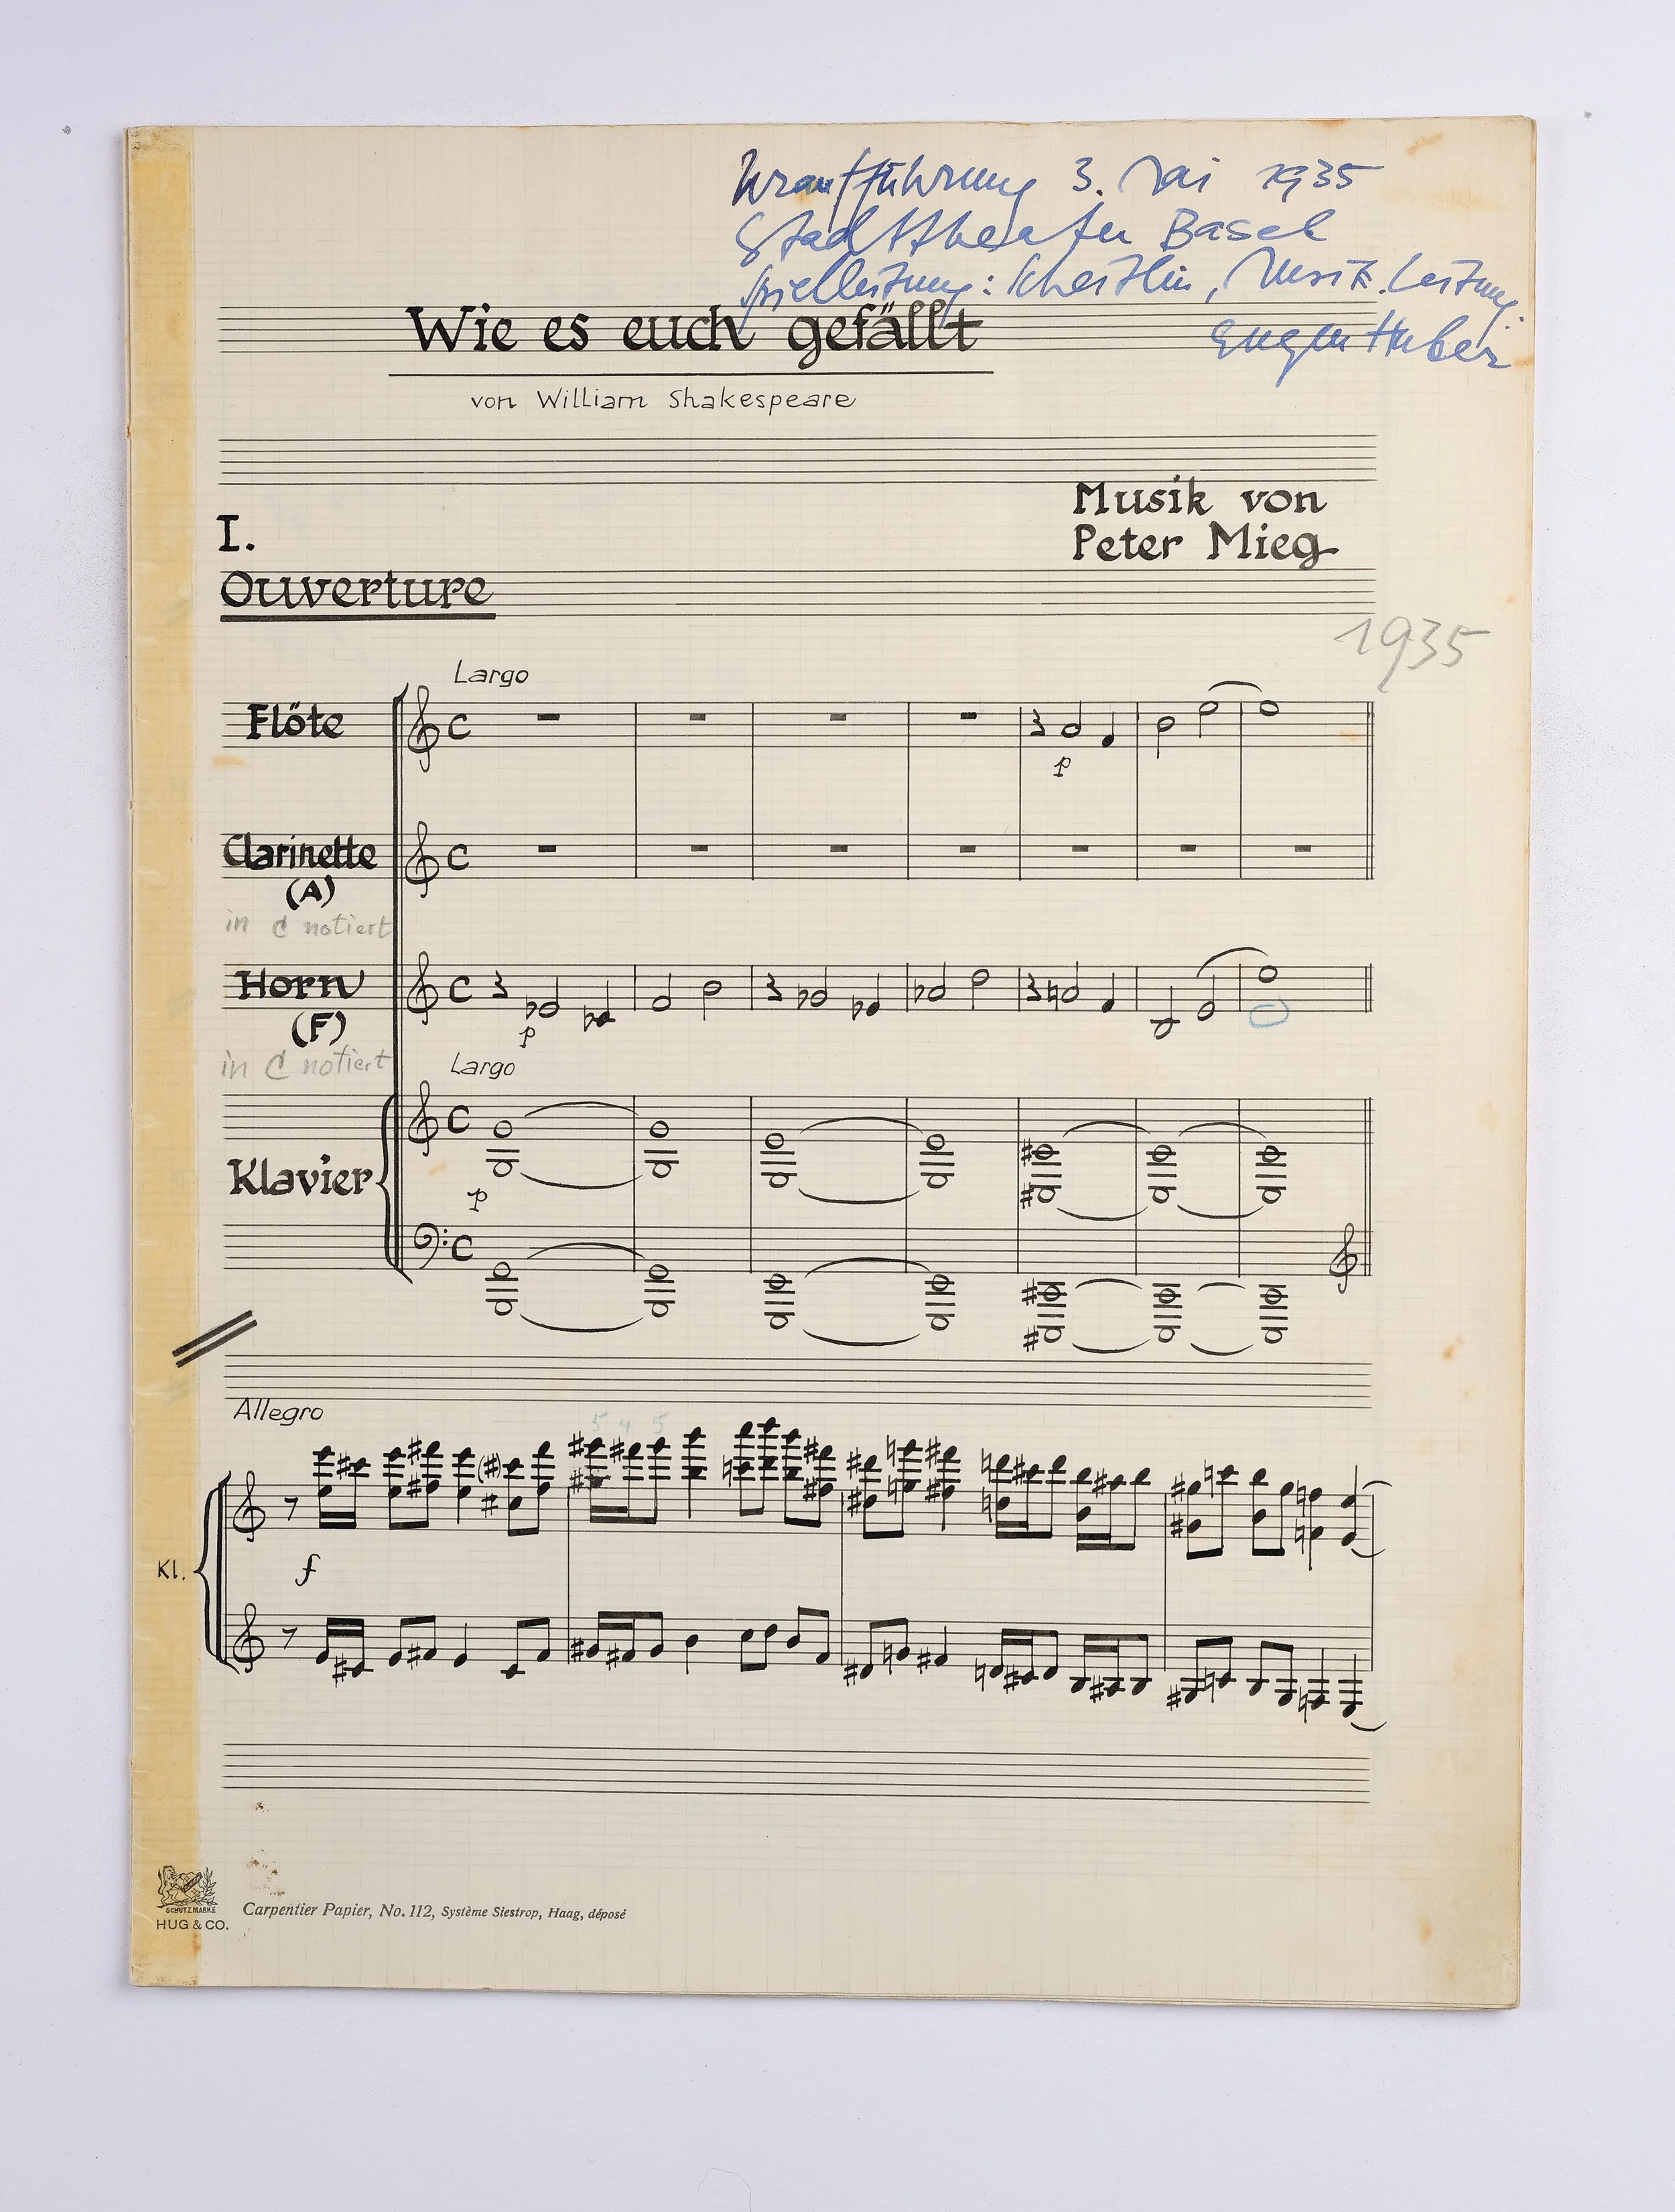 Uraufführung 3. Mai 1935
Stadttheater Basel
Spielleitung: , Musik. Leitung:
Eugen Huber
Wie es euch gefällt
von William Shakespeare
Musik von
Peter Mieg
I.
Ouverture
1935
Largo
Flöte
C
p
Clarinette
(A)
C
in C notiert
Horn
(F)
C
p
in C notiert
Largo
Klavier
C
p
C
Allegro
5 4 5
Kl.
f
SCHUTZMARKE
HUG & CO.
Carpentier Papier, No. 112, Système Siestrop, Haag, déposé